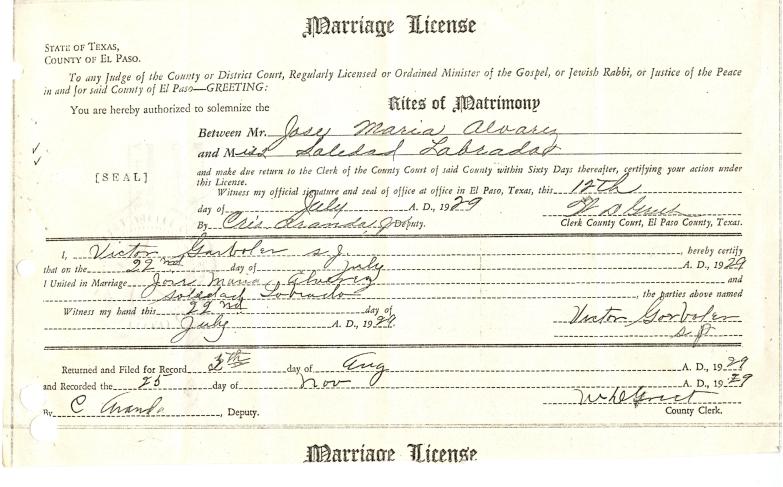 Marriage License
STATE OF TEXAS,
COUNTY OF EL PASO.
To any Judge of the County or District Court, Regularly Licensed or Ordained Minister of the Gospel, or Jewish Rabbi, or Justice of the Peace
in and for said County of El Paso—GREETING:
You are hereby authorized to solemnize the Rites of Matrimony
Between Mr. Jose Maria Alvarez
and Miss Soledad Labrador
and make due return to the Clerk of the County Court of said County within Sixty Days thereafter, certifying your action under
this License.
[SEAL]
Witness my official signature and seal of office at office in El Paso, Texas, this 12th
day of July A. D., 1929
By Cris Aranda, Jr Deputy. Clerk County Court, El Paso County, Texas.
I, Victor s. J. , hereby certify
that on the 22nd day of July A. D., 1929
I United in Marriage Jose Maria Alvarez and
Soledad Labrado , the parties above named
Witness my hand this 22nd day of
July A. D., 1929. Victor
Returned and Filed for Record day of Aug A. D., 1929
and Recorded the 25 day of Nov A. D., 1929
By C Aranda, Deputy. County Clerk.
Marriage License